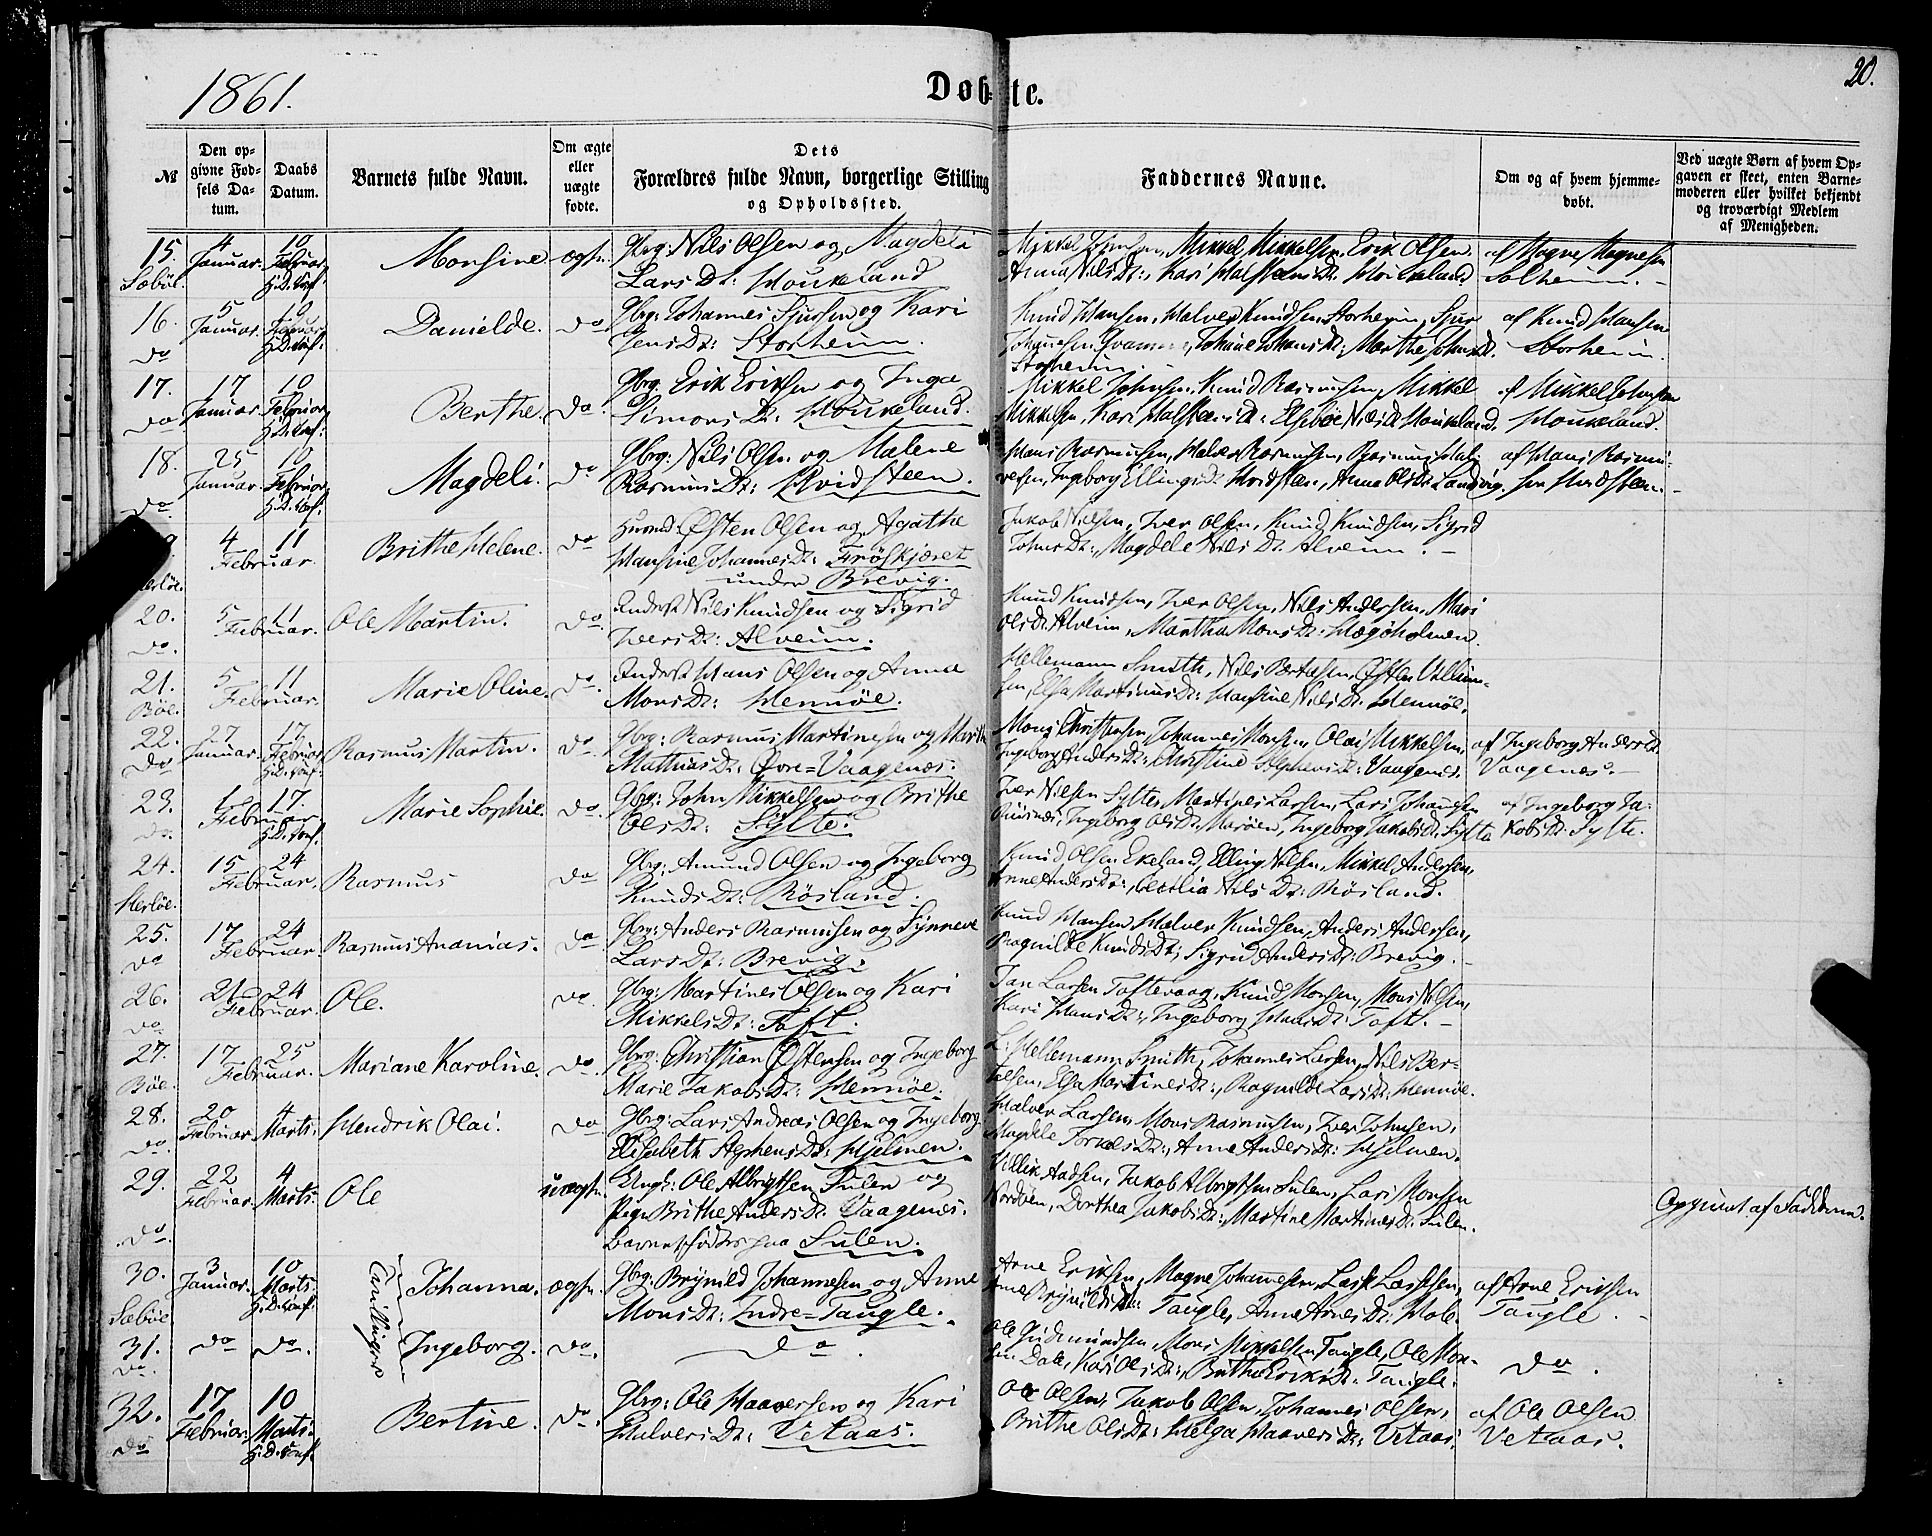 1861.
Døb-te.
20.
№
Den opgivne Fødsels Datum.
Daabs Datum.
Barnets fulde Navn.
Om ægte eller uægte fødte.
Dets Forældres fulde Navn, borgerlige Stilling og Opholdssted.
Faddernes Navne.
Om og af hvem hjemmedøbt.
Ved uægte Børn af hvem Opgaven er skeet, enten Barnemoderen eller hvilket bekjendt og troværdigt Medlem af Menigheden.
15. Sæbøe. 4 Januar. 10 Februar. Monsine ægte. Gbrg: Nils Olsen og Magdeli
Lars Dt: Houkeland
Mikkel Johnsen, Mikkel Mikkelsen, Erik Olsen,
Anna Nils Dt:, Kari Halsteens Dt: Houkeland
af Magne Magnesen
Solheim.
16. do 5 Januar. 10 Danielde. do Gbrg: Johannes Sjursen og Kari
Jens Dt: Storheim.
Knud Hansen, Halver Knudsen Storheim, Sjur
Storheim.
af Knud Hansen
Storheim.
17. do 17 Januar. 10 Februar. Berthe. do. Gbrg: Erik Eriksen og Inga
Simons Dt: Houkeland.
Mikkel Johnsen, Knud Rasmussen, Mikkel
Mikkelsen, Kari Halsteens Dt: Elsebøe Nils Dt Houkeland.
af Mikkel Johnsen
Houkeland.
18. do 25 Januar. 10 Februar. Magdeli. do Gbrg: Nils Olsen og Malene
Rasmus Dt: Hvidsteen.
Hans Rasmussen, Halver Rasmussen, Rasmus
Ingeborg Ellings Dt: Hvidsteen, Anna Ols Dt: Landvig.
af Hans Rasmus-
sen Hvidsteen.
4 Februar. 11 Brithe Helene. do Huusmd: Østen Olsen og Agatha
Hansine Johannes Dt: Frøskjæret
under Brevig.
Jakob Nilsen, Iver Olsen, Knud Knudsen, Sigrid
Johns Dt:, Magdele Nils Dt. Alveim.
20. do. 5 Februar. 11 Ole Martin. do. Inderst Nils Knudsen og Sigrid
Ivers Dt: Alveim.
Knud Knudsen, Iver Olsen, Nils Andersen, Mari
Ols Dt. Alveim, Martha Mons Dt: Hægøholmen.
21. Bøe. 5 Februar. 11 Marie Oline. do. Inderst Hans Olsen og Anna
Mons Dt: Hennøe.
Hellemann Smith, Nils Bertelsen, Østen Villum-
sen, Elsa Martinus Dt: Hansine Nils Dt. Hennøe.
22. do 27 Januar. 17 Februar. Rasmus Martin. do Gbrg: Rasmus Martinesen og Marthe
Mathias Dt: Øvre=Vaagenæs.
Mons Christensen, Johannes Monsen, Olai Mikkelsen,
Ingeborg Anders Dt:, Christine Stephens Dt: Vaagenes.
af Ingeborg Anders Dt.
Vaagenes.
23. do. 1 Februar 17. Marie Sophie. do. Gbrg: John Mikkelsen og Brithe
Ols Dt: Sylte.
Iver Nilsen Sylte, Martines Larsen, Lars Johannsen
Ingeborg Ols Dt. Marøen, Ingeborg Jakobs Dt. Sylte
af Ingeborg Ja-
kobs Dt: Sylte.
24. Herløe. 15 Februar. 24 Rasmus do Gbrg: Amund Olsen og Ingeborg
Knuds Dt: Røsland.
Knud Olsen Ekeland, Elling Nilsen, Mikkel Andersen,
Anne Anders Dt:, Cecilia Nils Dt: Røsland.
25. do 17 Februar. 24 Rasmus Ananias. do Gbrg: Anders Rasmussen og Synneve
Lars Dt: Brevig.
Knud Hansen, Halver Knudsen, Anders Andersen,
Ragnilde Knuds Dt:, Sigrid Anders Dt: Brevig.
26. do 21 Februar. 24 Ole. do. Gbrg: Martines Olsen og Kari
Mikkels Dt: Toft.
Jan Larsen Toftevaag, Knud Monsen, Mons Nilsen,
Kari Hans Dt:, Ingeborg Hans Dt: Toft.
27. Bøe. 17 Februar. 25 Mariane Karoline. do. Gbrg: Christian Østensen og Ingeborg
Marie Jakobs Dt: Hennøe.
L. Hellemann Smith, Johannes Larsen, Nils Ber-
telsen, Elsa Martines Dt:, Ragnilde Lars Dt: Hennøe.
28. do. 20 Februar. 4 Marts. Hendrik Olai. do. Gbrg: Lars Andreas Olsen og Ingeborg
Elisabeth Stephens Dt: Hjelmen.
Halver Larsen, Mons Rasmussen, Iver Johnsen,
Magdele Torkels Dt:, Anne Anders Dt: Hjelmen.
29. do. 22 Februar. 4 Marts. Ole uægte. Ungk: Ole Albrigtsen Sulen og
Pige Brithe Anders Dt: Vaagenes.
Barnet født paa Sulen.
Jakob Albrigtsen Sulen, Lars Monsen
Nordøen, Dorthea Jakobs Dt:, Martine Martines Dt: Sulen.
Opgivet af Fadderne.
30. Sæbøe. 3 Januar. 10 Marts. Tvillinger Johanna. ægte. Gbrg: Brynild Johannesen og Anne
Mons Dt: Indre=Tangle.
Arne Eriksen, Magne Johannesen, Lasse Lassesen,
Anne Brynilds Dt: Tangle, Anne Arnes Dt: Hole.
af Arne Eriksen
Tangle.
31. do. do do. Ingeborg. do. do.
Ole Gudmundsen, Mons Mikkelsen Tangle, Ole Mon-
sen Dale, Kari Ols Dt:, Brithe Eriks Dt. Tangle.
do.
32. do 17 Februar. 10 Marts. Bertine. do. Gbrg: Ole Haaversen og Kari
Halvers Dt: Vetaas.
Ole Olsen, Jakob Olsen, Johannes Olsen,
Brithe Ols Dt: Helga Haavers Dt: Vetaas.
af Ole Olsen
Vetaas.